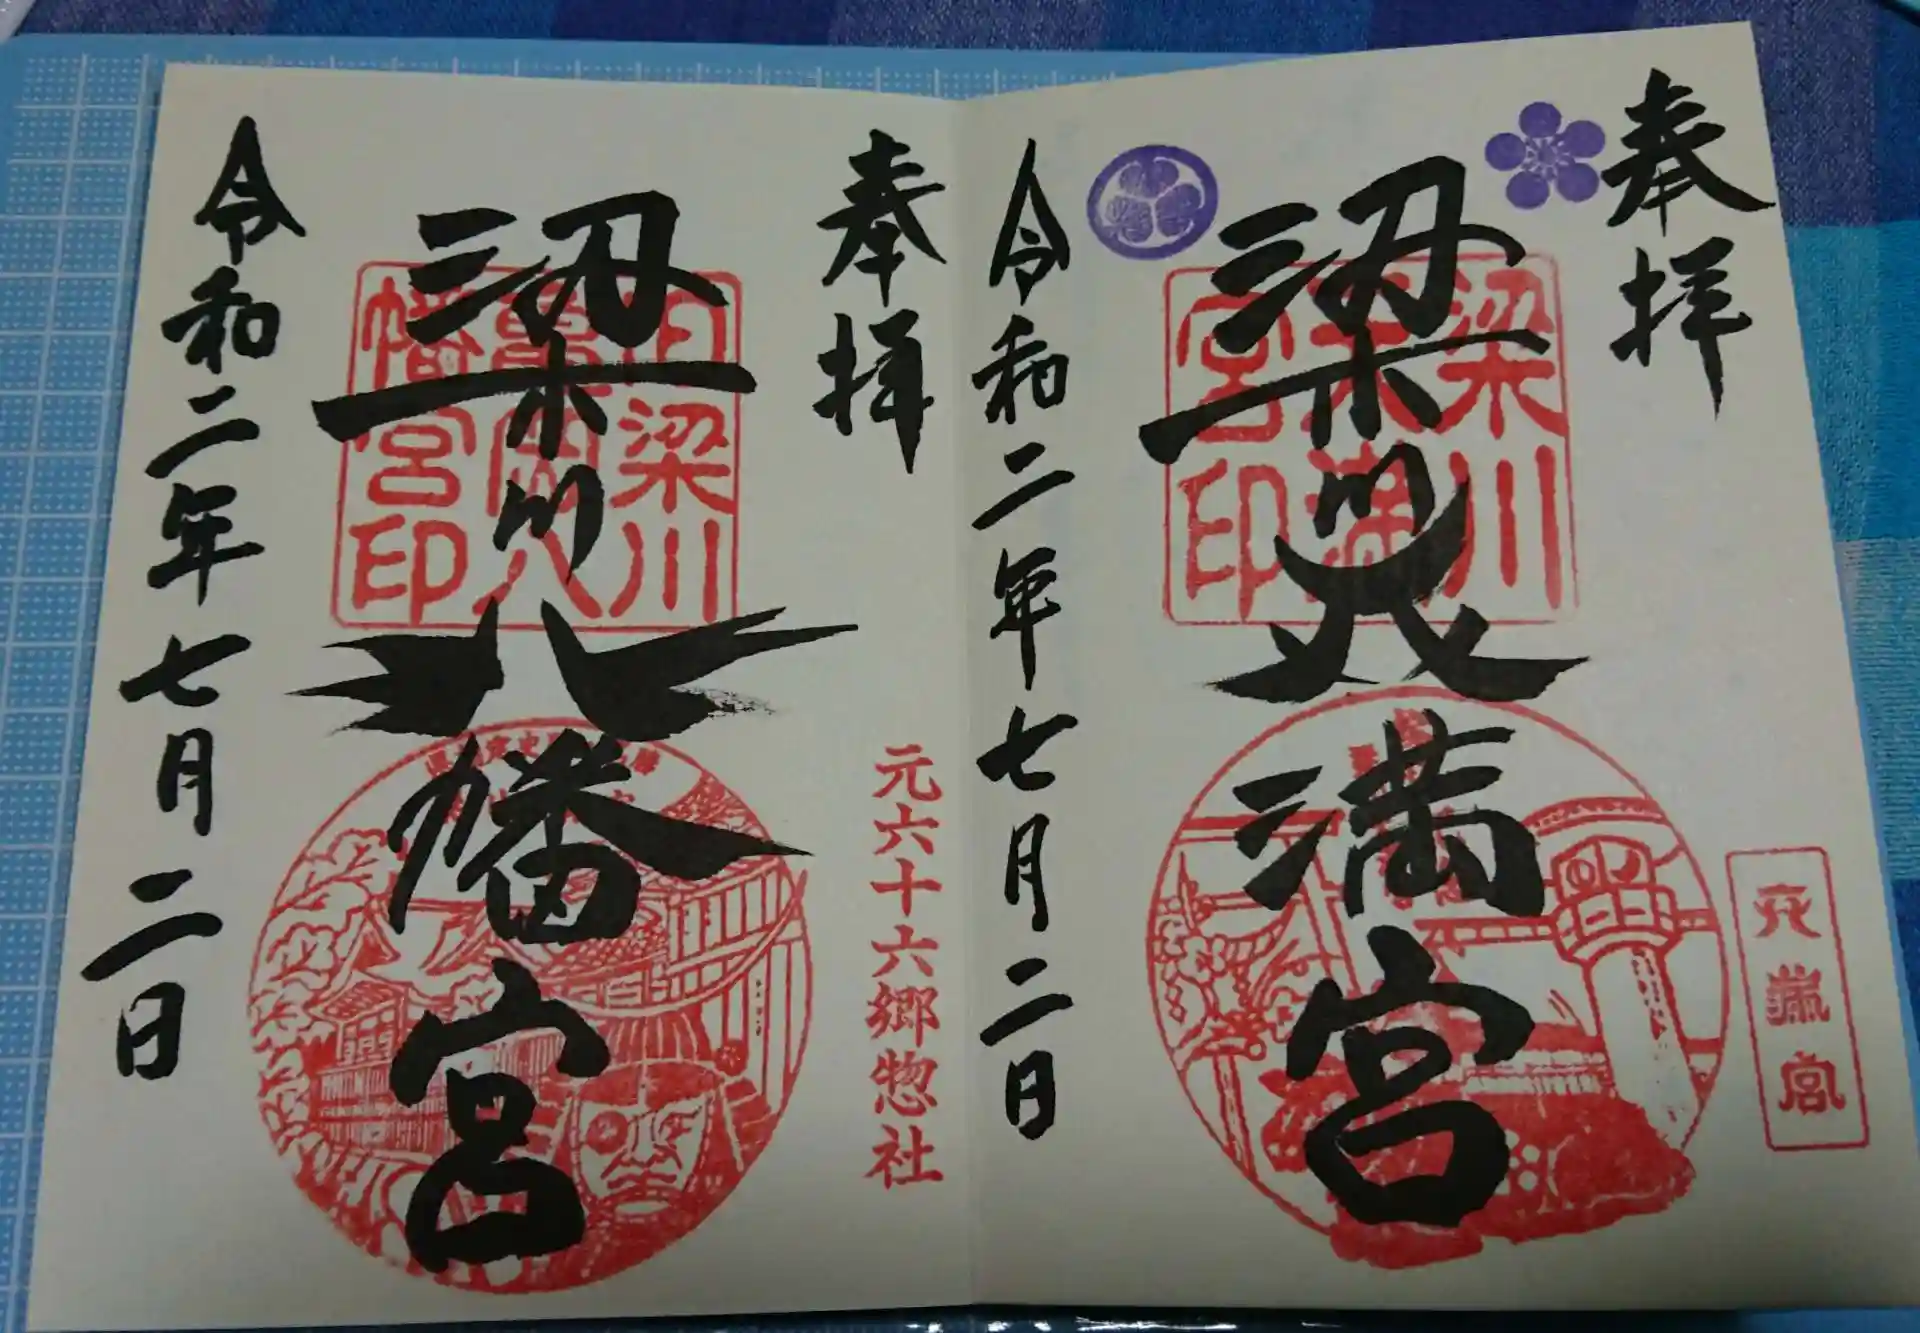 奉拝
梁川天満宮
梁川天満宮印
天満宮
令和二年七月二日
奉拝
梁川八幡宮
梁川亀岡八幡宮印
元六十六郷惣社
令和二年七月二日